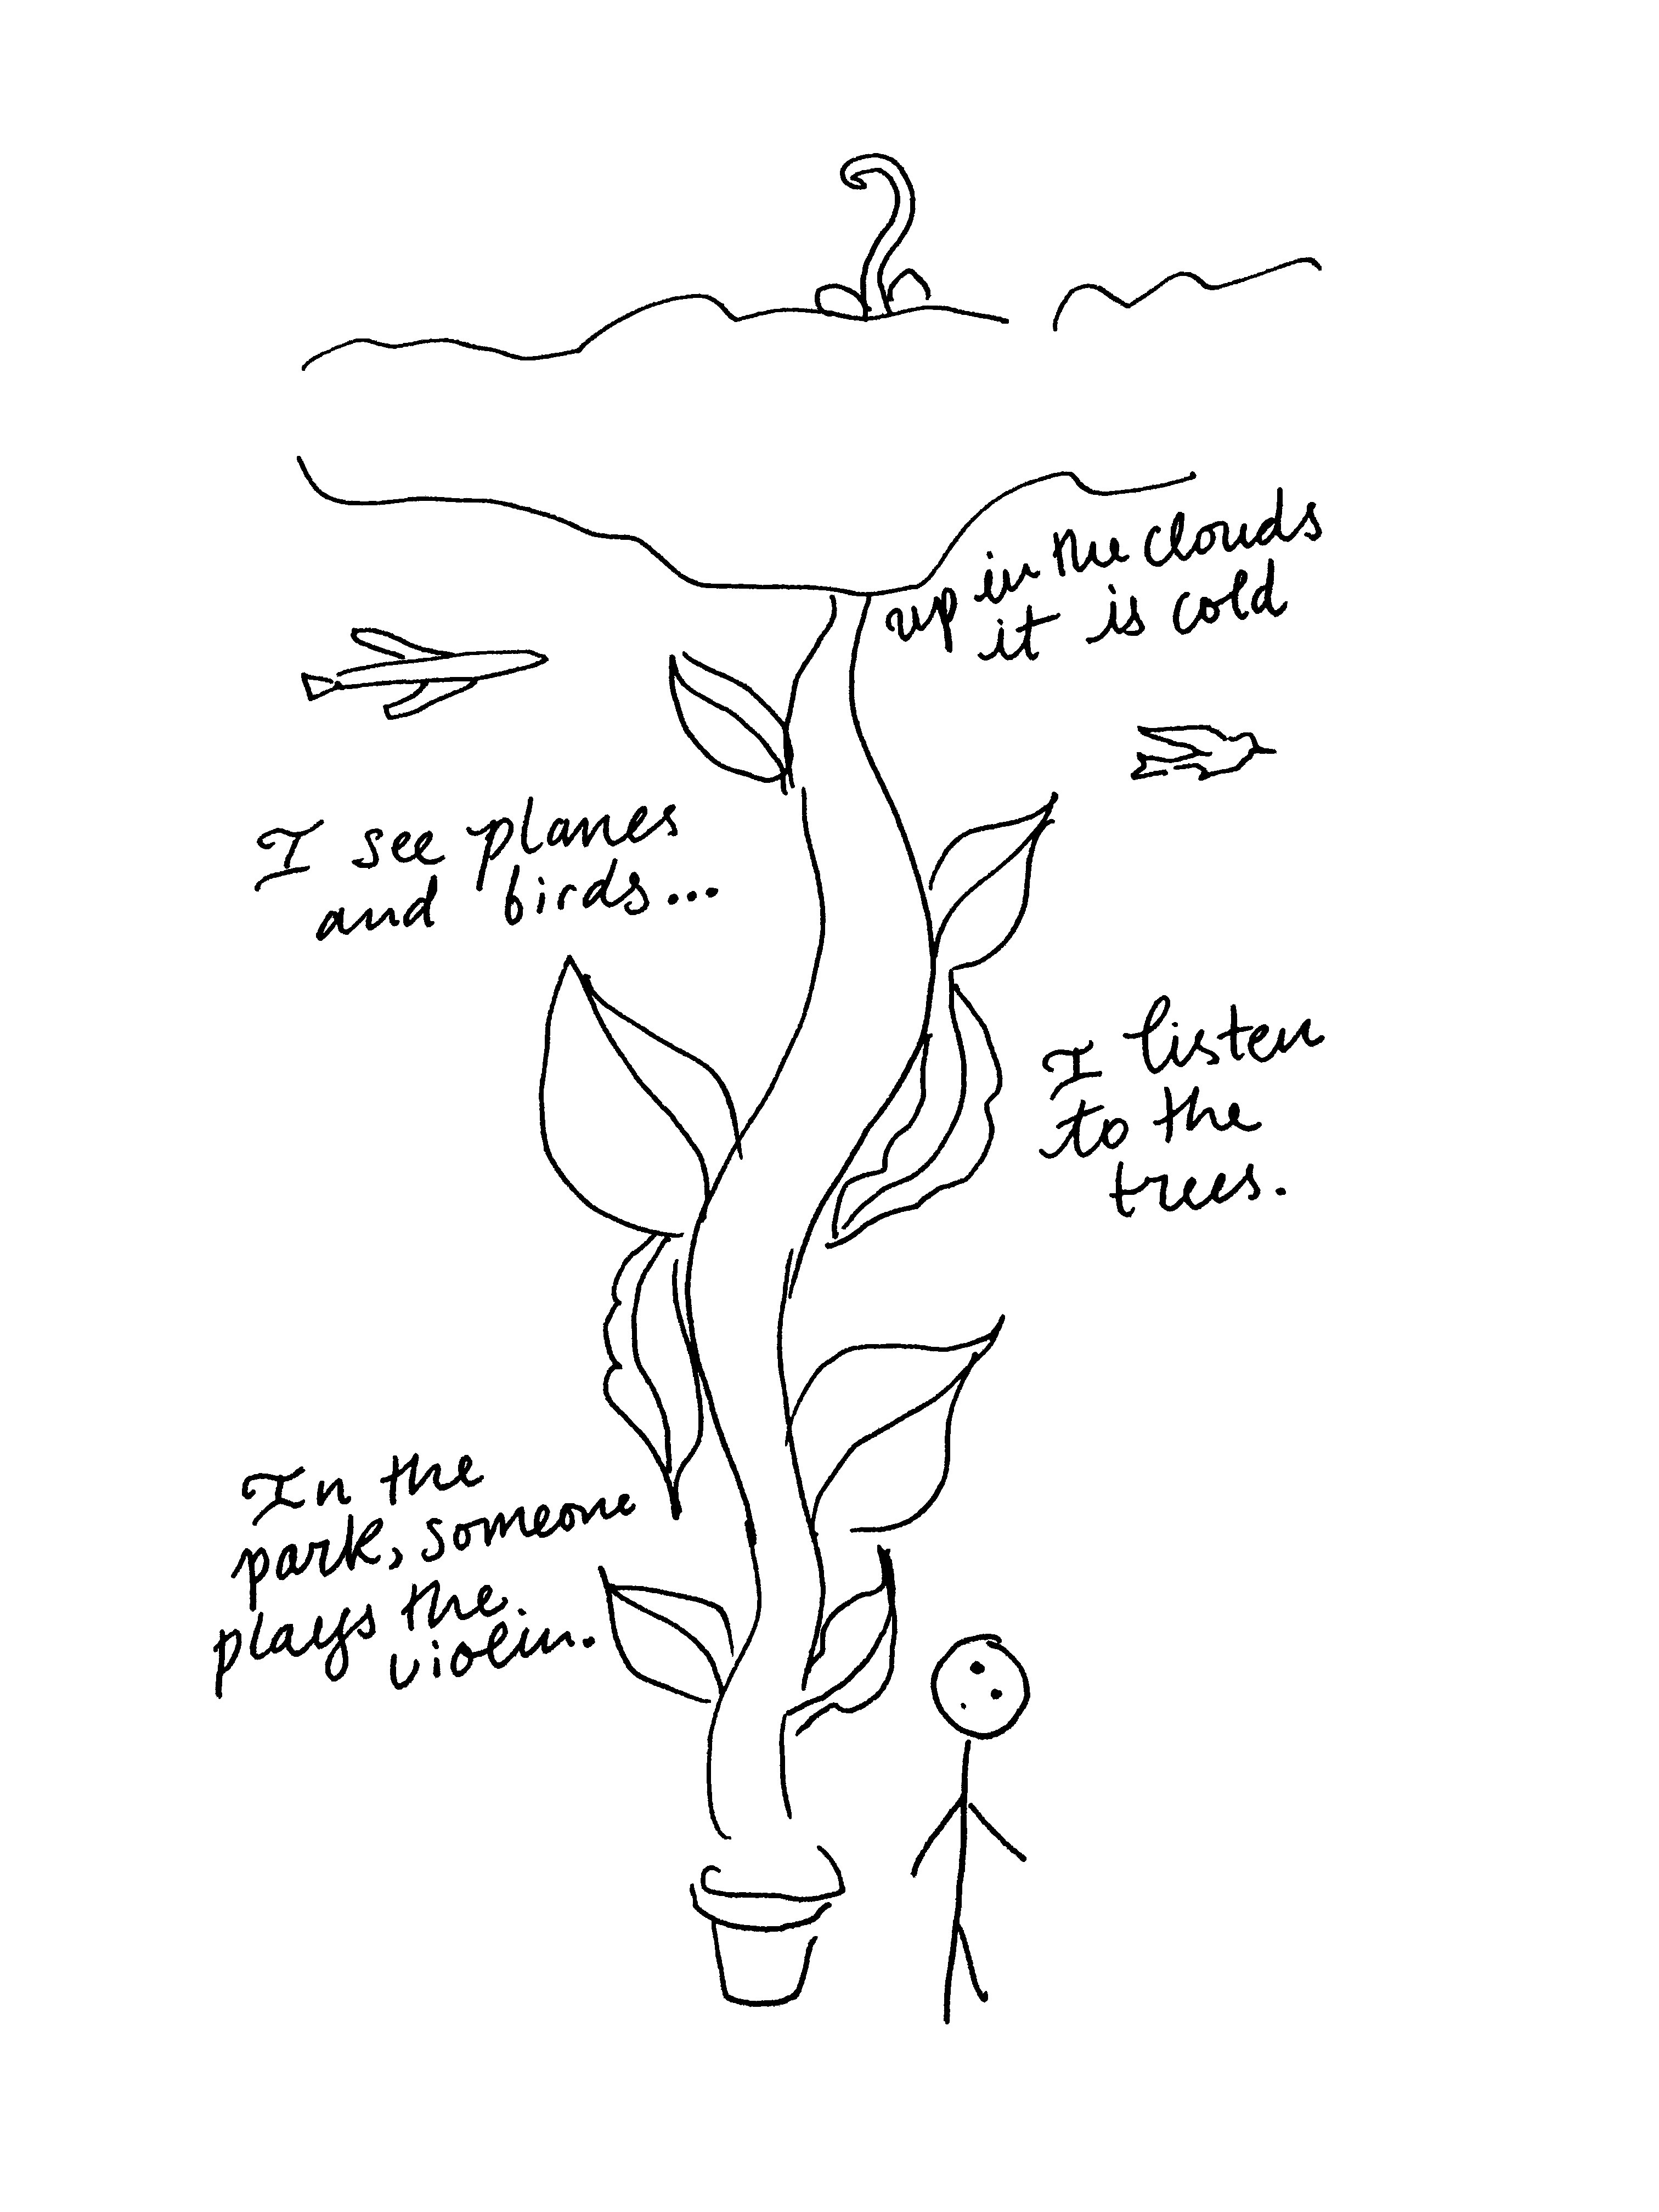 up in the clouds
it is cold
I see planes
and birds...
I listen
to the
trees.
In the
park, someone
plays the
violin.